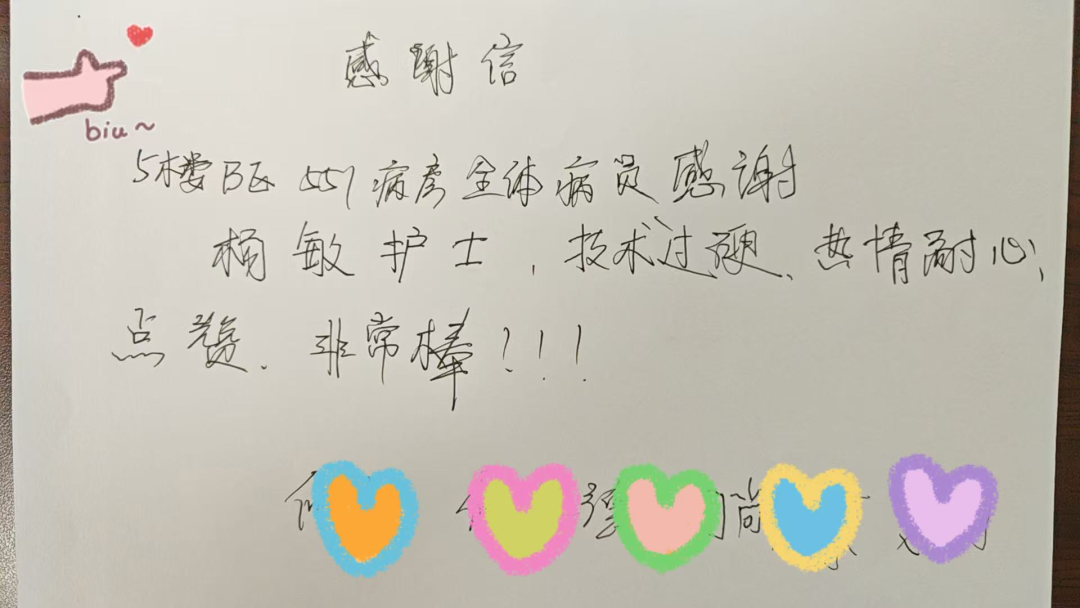 感谢信
biu~
5楼B区557病房全体病员感谢
杨敏护士,技术过硬、热情耐心,
点赞.非常棒!!!